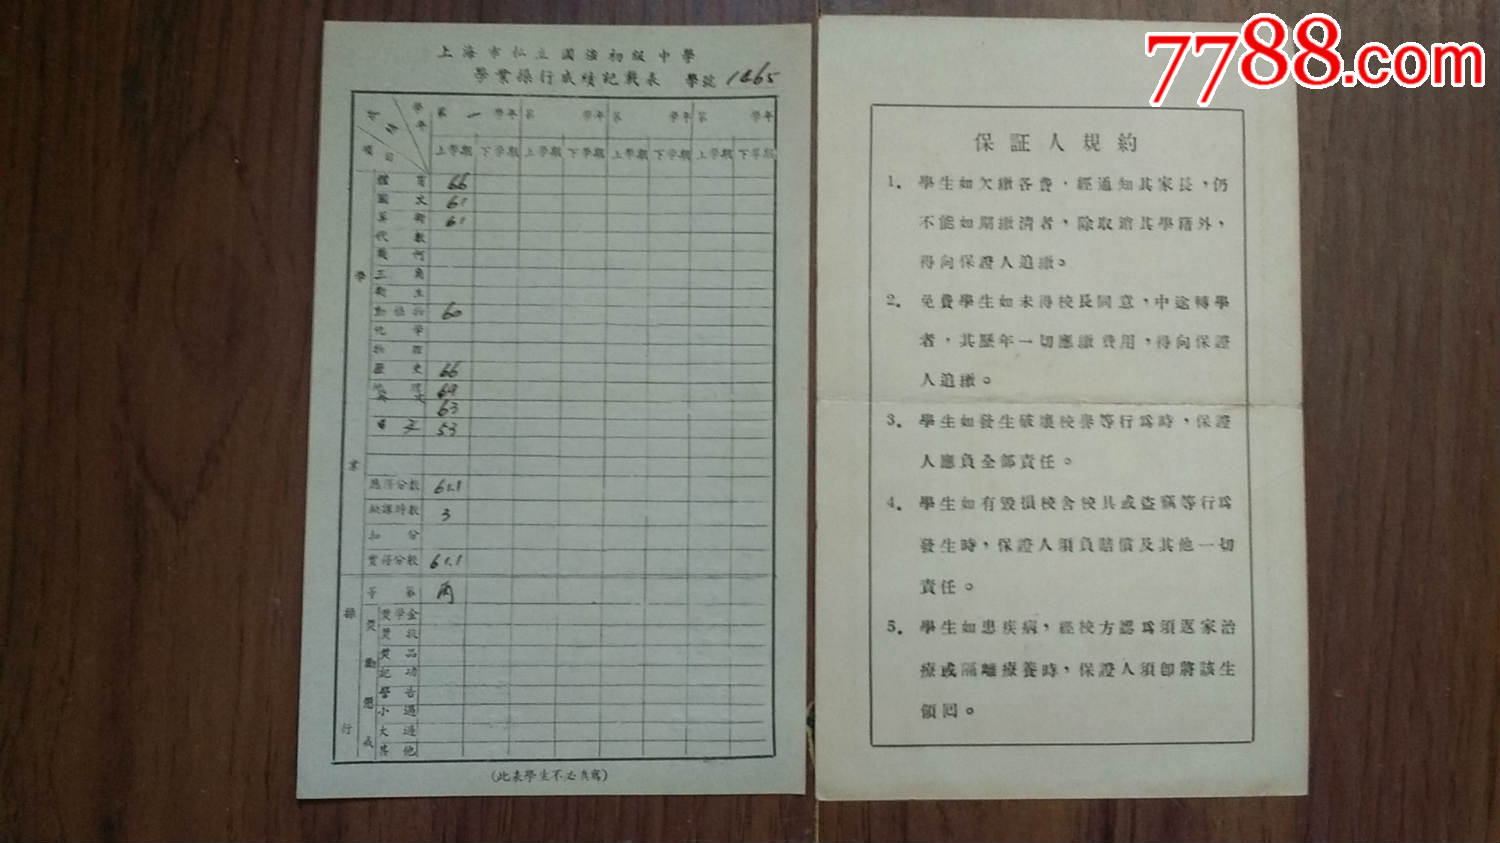 7788.com
上海市私立國强初級中學
學業操行成績記載表 學號 1465
學年 第一學年 第 學年 第 學年 第 學年
項目 上學期 下學期 上學期 下學期 上學期 下學期 上學期 下學期
學業
體育 66
國文 61
算術 61
代數
幾何
三角
衛生
動植物 60
化學
物理
歷史 66
地理 69
英文 63
53
應得分數 61.1
缺課時數 3
扣分
實得分數 61.1
操行
等第 丙
獎勵懲戒
獎學金
獎狀
獎品
記功
警告
小過
大過
其他
(此表學生不必填寫)
保証人規約
1. 學生如欠繳各費，經通知其家長，仍
不能如期繳清者，除取消其學籍外，
得向保證人追繳。
2. 免費學生如未得校長同意，中途轉學
者，其歷年一切應繳費用，得向保證
人追繳。
3. 學生如發生破壞校譽等行爲時，保證
人應負全部責任。
4. 學生如有毀損校舍校具或盜竊等行爲
發生時，保證人須負賠償及其他一切
責任。
5. 學生如患疾病，經校方認爲須返家治
療或隔離療養時，保證人須即將該生
領回。